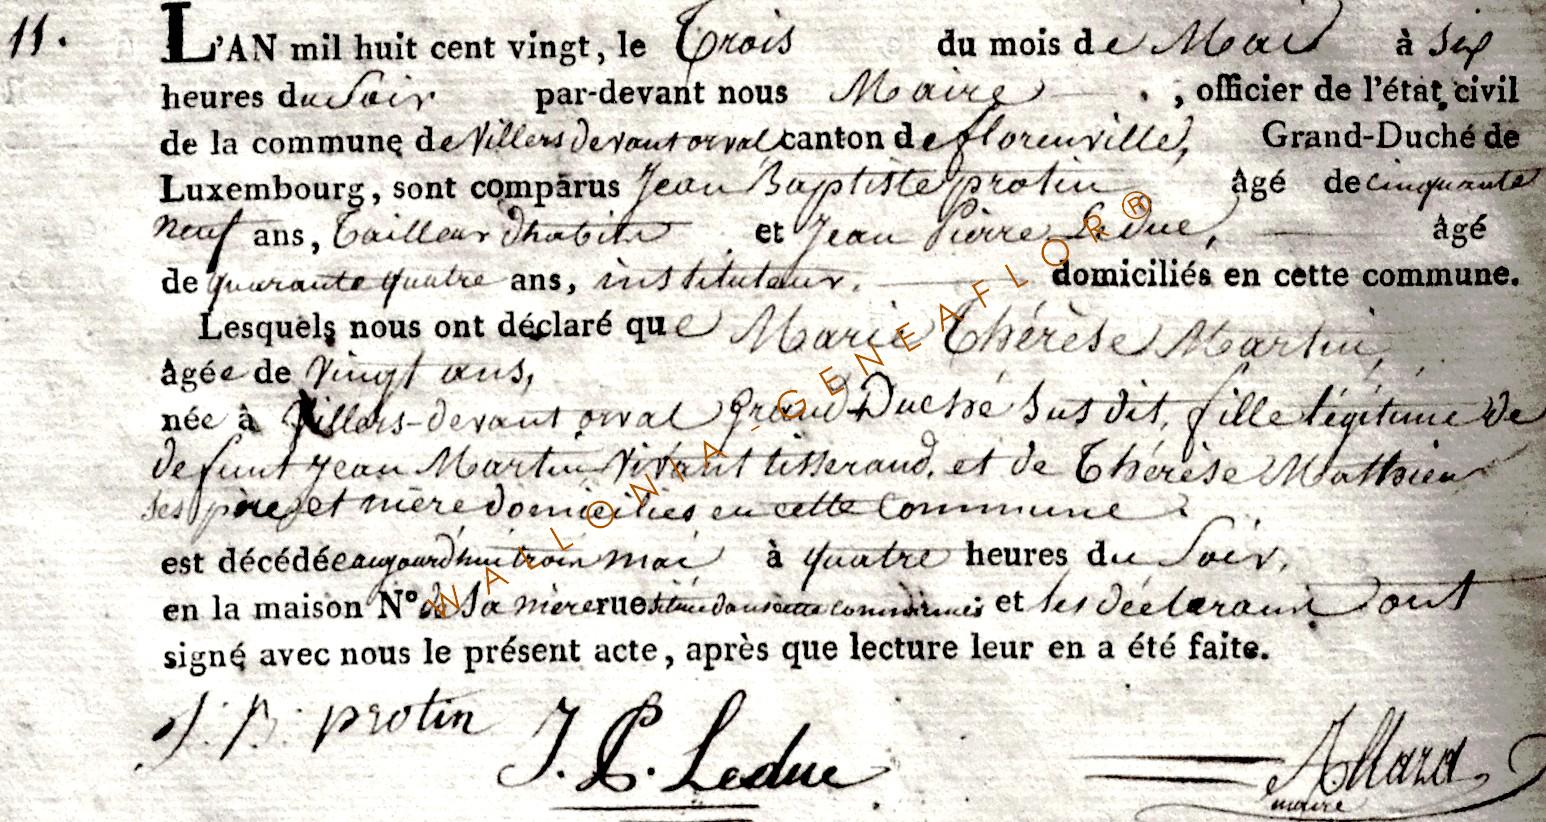 11.
L'AN mil huit cent vingt, le Trois du mois de Mai à six
heures du soir par-devant nous Maire , officier de l'état civil
de la commune de Villers devant orval canton de florenville, Grand-Duché de
Luxembourg, sont comparus Jean Baptiste protin âgé de cinquante
neuf ans, Tailleur d'habits et Jean Pierre Leduc, âgé
de quarante quatre ans, instituteur. domiciliés en cette commune.
Lesquels nous ont déclaré que Marie Thérèse Martin,
âgée de vingt ans,
née à Villers-devant orval Grand Duché susdit, fille légitime de
defunt Jean Martin vivant tisserand, et de Thérèse Mathieu
ses père et mère domiciliés en cette Commune
est décédée aujourd'hui trois mai à quatre heures du soir,
en la maison N° de sa mère rue située dans cette commune et les déclarans ont
signé avec nous le présent acte, après que lecture leur en a été faite.
J. B. protin J. P. Leduc Allard
maire
WALLONIA-GENEAFLOR®